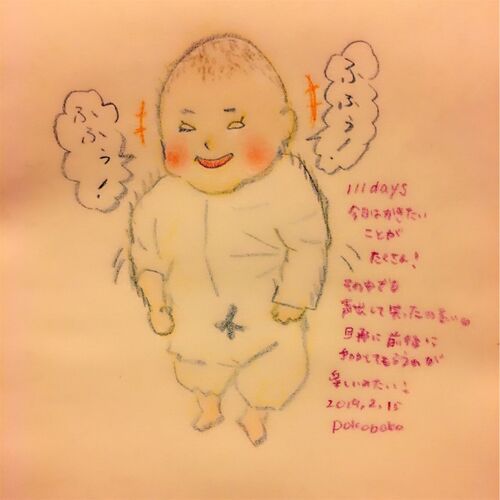 ふふっ!
ふふっ!
111days
今日はかきたい
ことが
たくさん!
その中でも
声出して笑ったの
旦那に前後に
してもらうのが
楽しいみたい!
2019.2.15